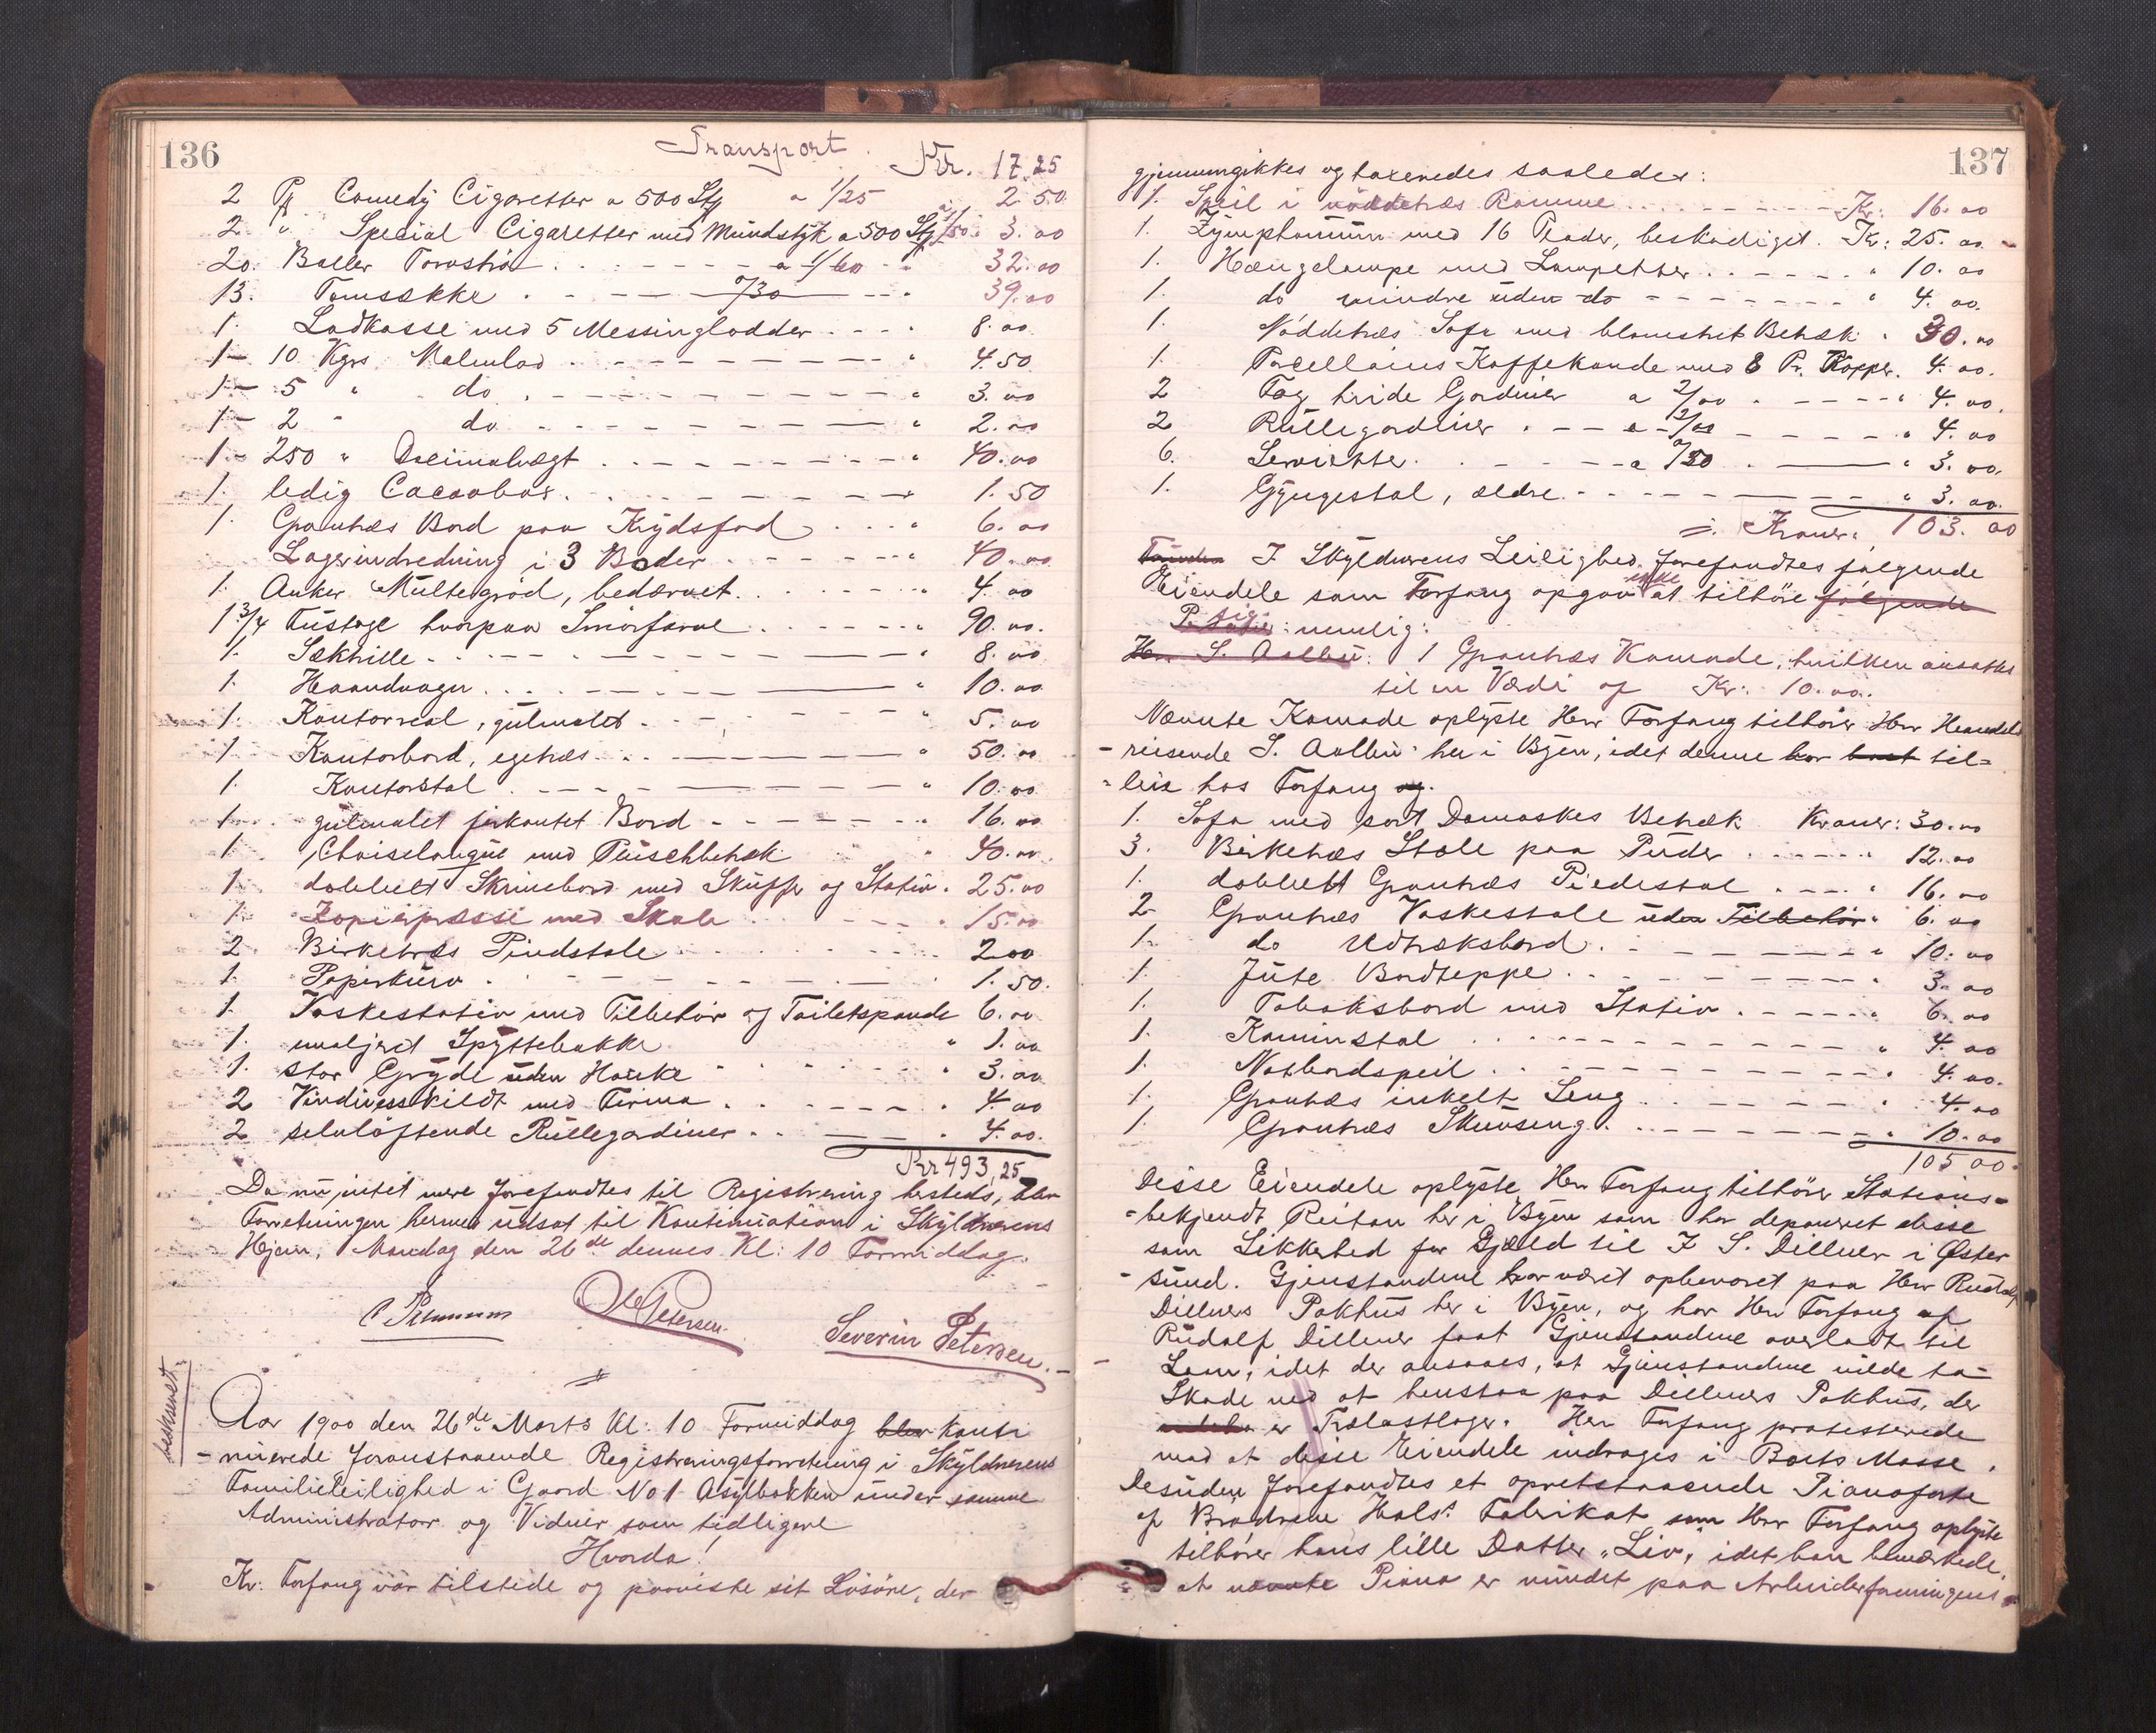 136
Transport
Kr. 17.25
2 Pk Comedy Cigaretter a 500 Stk a 1/25 2.50
2 " Special Cigaretter med Mundstyk a 500 Stk a 1/50 " 3.00
20. Baller Torvstrø a 1/60 " 32.00
13. Tomsække 0/30 " 39.00
1. Lodkasse med 5 Messinglodder " 8.00
1 - 10 Kgrs Malmlod " 4.50
1 - 5 " do " 3.00
1 - 2 " do " 2.00
1 - 250 " Decimalvægt " 40.00
1. ledig Cacaobox " 1.50
1. Grantræs Bord paa Krydsfod " 6.00
Lagerindredning i 3 Boder " 40.00
1. Anker Multegrød, bedærvet " 4.00
1 3/4 Fustage hvorpaa Smørfarve " 90.00
1. Sæktrille " 8.00
1. Haandvogn " 10.00
1. Kontorreol, gulmalet " 5.00
1. Kontorbord, egetræs " 50.00
1. Kontorstol " 10.00
1. gulmalet firkantet Bord " 16.00
1. Chaiselongue med Plüschbetræk " 40.00
1. dobbelt Skrivebord med Skuffer og Stativ " 25.00
1. Kopierpresse med Skab " 15.00
2 Birketræs Pindstole 2.00
1. Papirkurv 1.50
1. Vaskestativ med Tilbehør og Toiletspande 6.00
1. emaljeret Spyttebakke " 1.00
1. stor Gryde uden Hanke " 3.00
2 Vinduesskildt med Firma " 4.00
2 selvløftende Rullegardiner " 4.00
Kr 493,25
Da nu intet mere forefandtes til Registrering bestods, blev
Forretningen hermed udsat til Kontinuation i Skyldnerens
Hjem, Mandag den 26de dennes Kl: 10 Formiddag.
Petersen
Severin Petersen
beskrevet
Aar 1900 den 26de Marts Kl: 10 Formiddag blev konti
-nuerede foranstaaende Registreringsforretning i Skyldnerens
Familieleilighed i Gaard No 1 Asylbakken under samme
Administrator og Vidner som tidligere
Hvorda!
Hr: Forfang var tilstede og paaviste sit Løsøre, der
137
gjennemgikkes og taxeredes saaledes:
1. Speil i nøddetræs Ramme Kr: 16.00
1. Symphonium med 16 Plader, beskadiget. Kr: 25.00
1. Hængelampe med Lampetter " 10.00
1. do mindre uden do " 4.00
1. Nøddetræs Sofa med blomstret Betræk " 30.00
1. Porcellains Kaffekande med 8 Pr. Kopper. 4.00
2 Fag hvide Gardiner a 2/00 " 4.00
2 Rullegardiner a 2/00 " 4.00
6. Servietter a 0/50 " 3.00
1. Gyngestol, ældre " 3.00
Kroner: 103.00
I Skyldnerens Leilighed forefandtes følgende
Eiendele som Forfang opgav ikke at tilhøre følgende
sig: nemlig:
Hr S. Aalbu: 1 Grantræs Komode, hvilken ansattes
til en Værdi af Kr: 10.00
Nævnte Komode oplyste Herr Forfang tilhører Herr Handels
-reisende S. Aalbu her i Byen, idet denne har boet til-
-leie hos Forfang og.
1. Sofa med sort Damaskes Betræk Kroner: 30.00
3. Birketræs Stole paa Puder " 12.00
1. dobbelt Grantræs Piedestal " 16.00
2 Grantræs Vaskestole uden Tilbehør " 6.00
1. do Udtræksbord " 10.00
1. Jute Bordteppe " 3.00
1. Tobaksbord med Stativ " 6.00
1. Kaminstol " 4.00
1. Natbordspeil " 4.00
1. Grantræs enkelt Seng " 4.00
1. Grantræs Skuvseng " 10.00
105 00
Disse Eiendele oplyste Herr Forfang tilhører Stations-
-betjendt Reitan her i Byen som har deponeret disse
som Sikkerhed for Gjæld til I S. Dillner i Øster
-sund. Gjenstandene har været opbevaret paa Herr Rudolf
Dillners Pakhus her i Byen, og har Herr Forfang af
Rudolf Dillner faat Gjenstandene overladt til
Laan, idet der ansaaes, at Gjenstandene vilde ta-
Skade ved at henstaa paa Dillners Pakhus, der
er Trælastlager. Herr Forfang protesterede
mod at disse Eiendele inddrages i Boets Masse.
Desuden forefandtes et opretstaaende Pianoforte
af Brødrene Hals' Fabrikat som Herr Forfang oplyste
tilhører hans lille Datter "Liv", idet han bemærkede,
at nævnte Piano er vundet paa Arbeiderforeningens